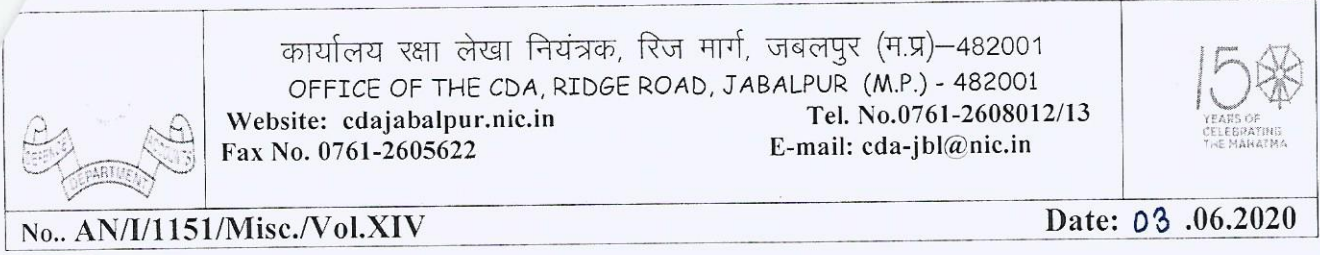 कार्यालय रक्षा लेखा नियंत्रक, रिज मार्ग, जबलपुर (म.प्र)–482001
OFFICE OF THE CDA, RIDGE ROAD, JABALPUR (M.P.) - 482001
Website: cdajabalpur.nic.in Tel. No.0761-2608012/13
Fax No. 0761-2605622 E-mail: cda-jbl@nic.in
DEFENCE ACCOUNTS
DEPARTMENT
150
YEARS OF
CELEBRATING
THE MAHATMA
No.. AN/I/1151/Misc./Vol.XIV Date: 03 .06.2020